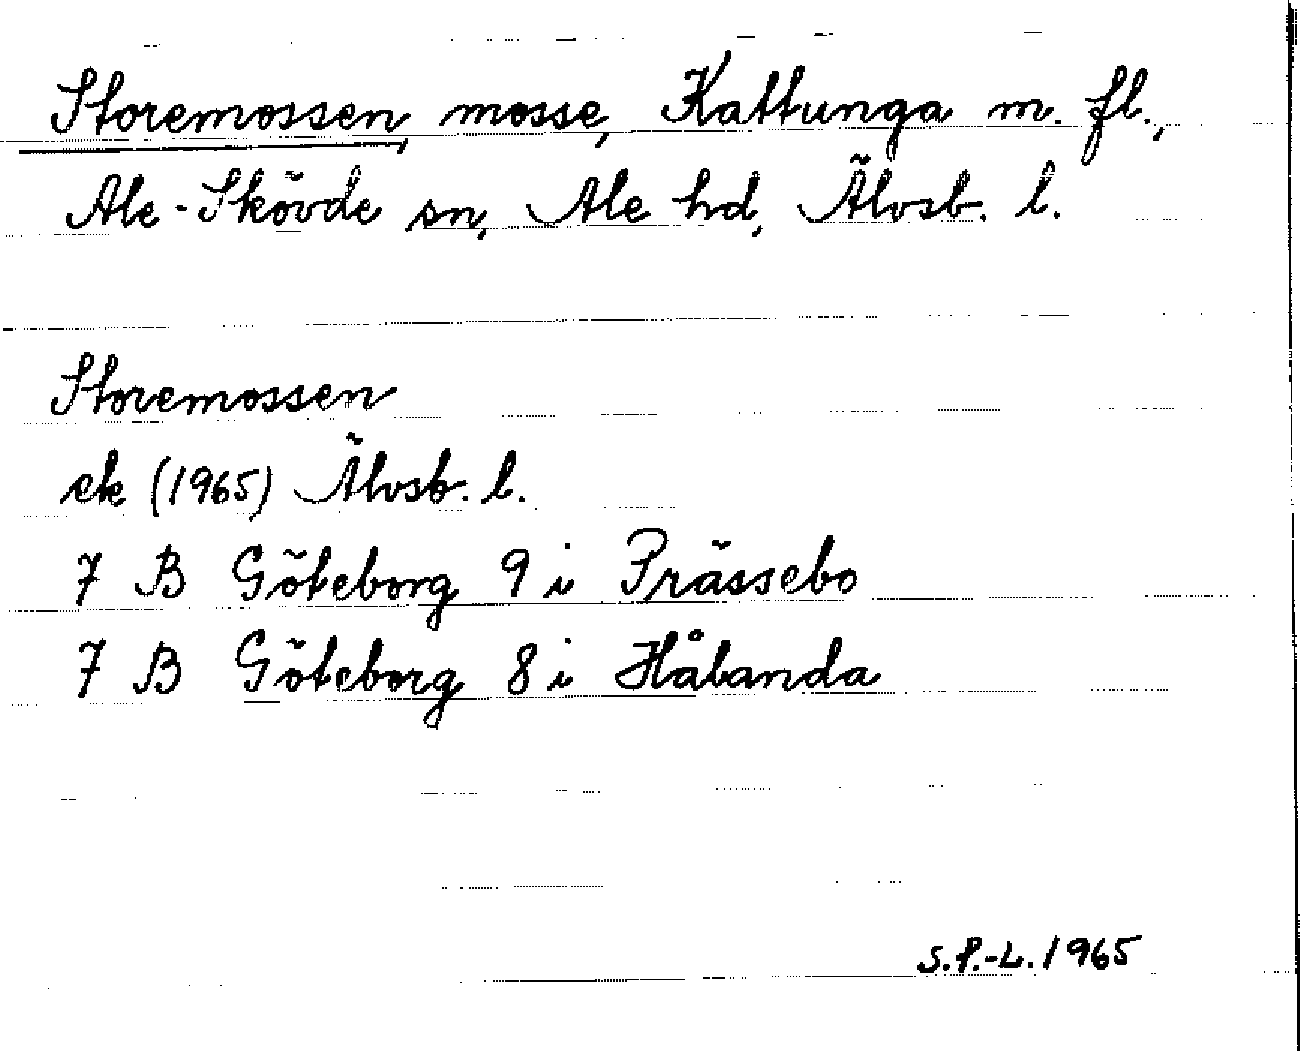 Storemossen, mosse, Kattunga m. fl.,
Ale-Skövde sn, Ale hd, Älvsb. l.
Storemossen
ek (1965) Älvsb. l.
7 B Göteborg 9 i Prässebo
7 B Göteborg 8 i Hålanda
S.P.-L. 1965